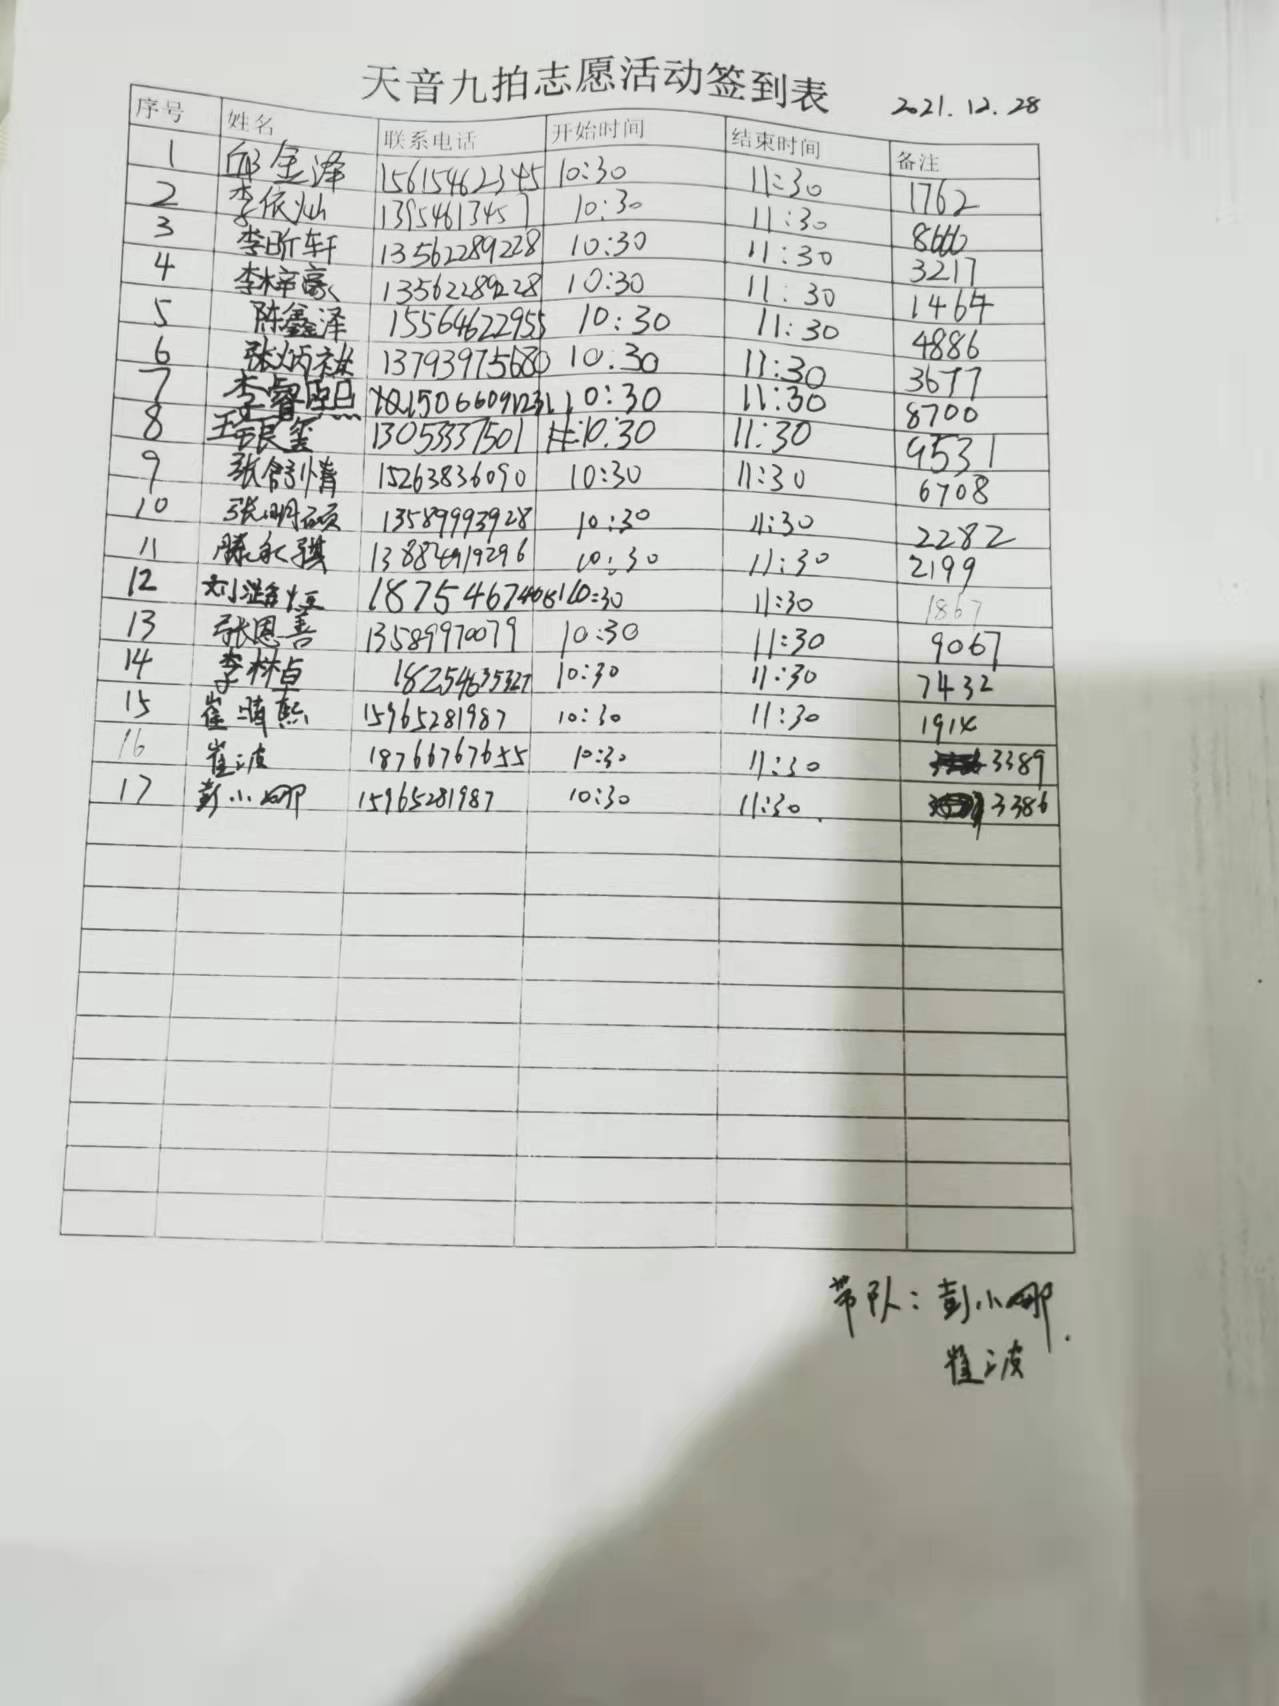 天音九拍志愿活动签到表 2021.12.28
序号 姓名 联系电话 开始时间 结束时间 备注
1 邱金泽 15615462345 10:30 11:30 1762
2 李依灿 13954613457 10:30 11:30
3 李昕轩 13562289228 10:30 11:30 3217
4 李梓豪 13562289228 10:30 11:30 1464
5 陈鑫泽 15564622955 10:30 11:30 4886
6 13793975680 10:30 11:30 3677
7 10:30 11:30 8700
8 13053337501 10:30 11:30 9531
9 15263836090 10:30 11:30 6708
10 张明硕 13589993928 10:30 11:30 2282
11 滕永骐 13884919296 10:30 11:30 2199
12 10:30 11:30 1867
13 张恩善 13589970079 10:30 11:30 9067
14 李林卓 18254635327 10:30 11:30 7432
15 崔晴熙 15965281987 10:30 11:30 1914
16 崔波 18766767655 10:30 11:30 3389
17 彭小娜 15965281987 10:30 11:30. 3386
带队：彭小娜.
崔波